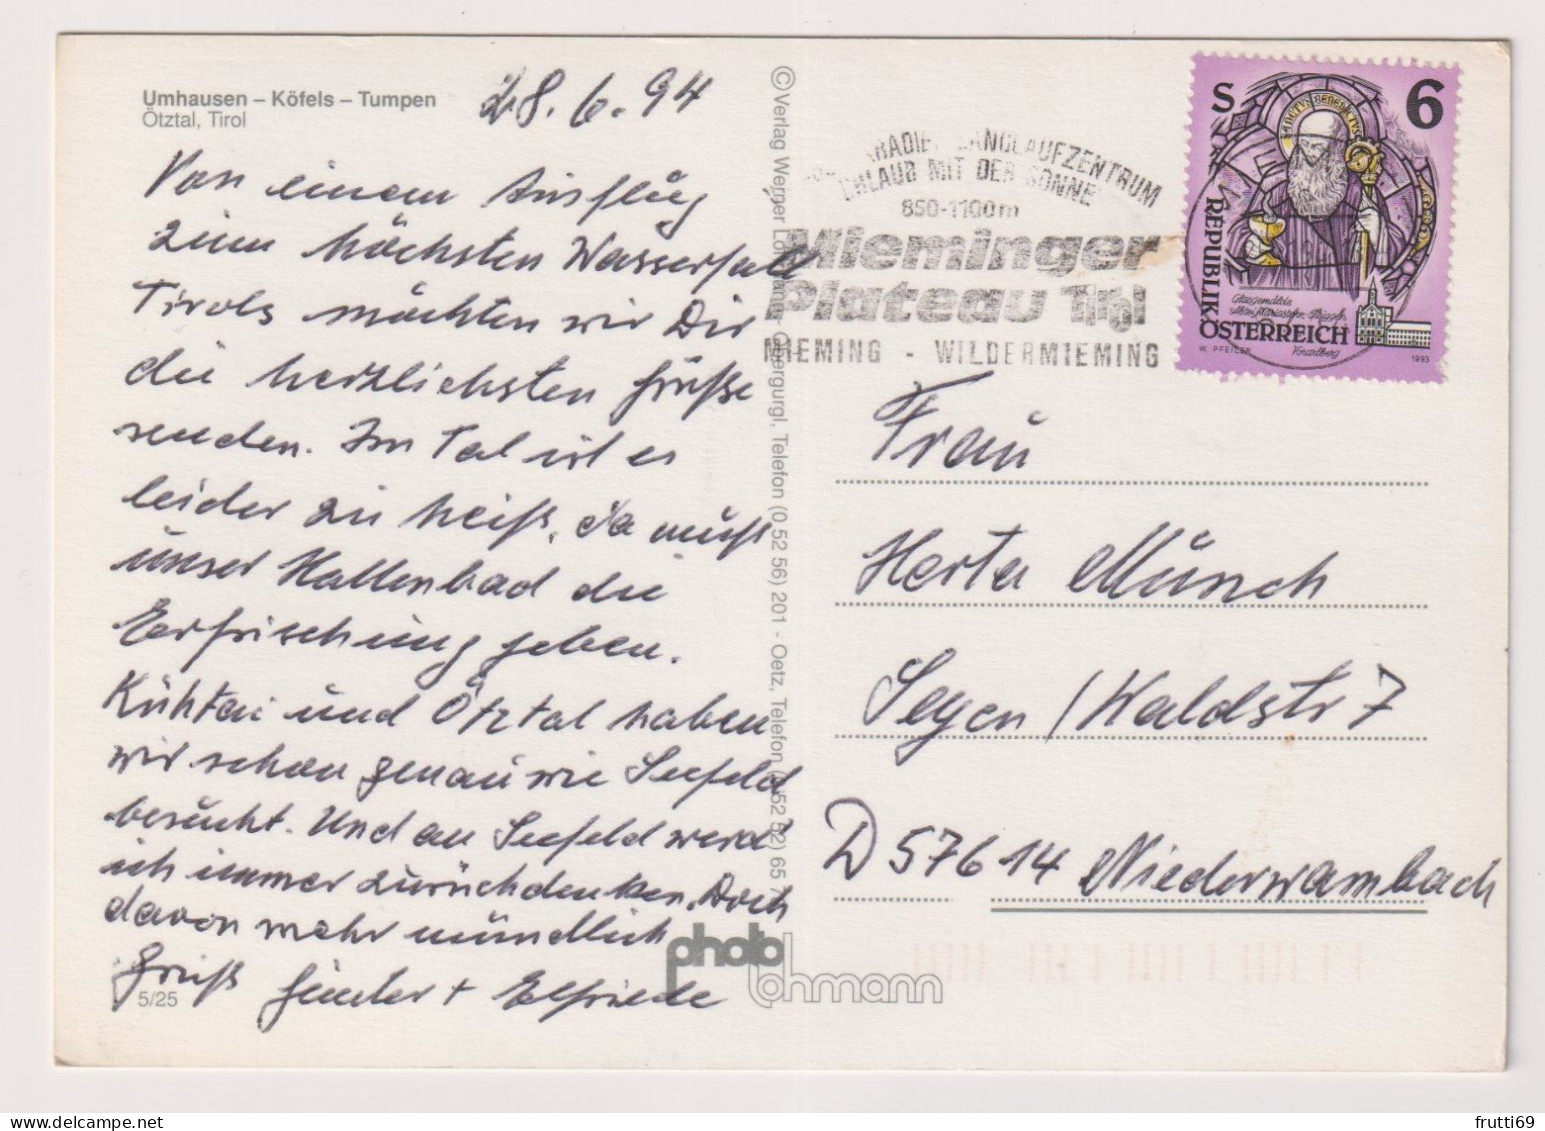 Umhausen – Köfels – Tumpen
Ötztal, Tirol
28.6.94
Von einem Ausflug
zum höchsten Wasserfall
Tirols möchten wir Dir
die herzlichsten Grüße
senden. Im Tal ist es
leider zu heiß, da muß
unser Hallenbad die
Erfrischung geben.
Kühtai und Ötztal haben
wir schon genau wie Seefeld
besucht. Und an Seefeld werd'
ich immer zurückdenken. Doch
davon mehr mündlich
Gruß Günter + Elfriede
5/25
© Verlag Werner Lohmann - Obergurgl, Telefon (0 52 56) 201 - Oetz, Telefon (0 52 52) 65
photo
lohmann
LANGLAUFZENTRUM
URLAUB MIT DER SONNE
850-1100m
Mieminger
Plateau Tirol
MIEMING - WILDERMIEMING
S 6
SANCTVS BENEDICTVS
REPUBLIK
ÖSTERREICH
Glasgemälde
Vorarlberg
W. PFEILER
1993
Frau
Herta Münch
Seyen / Waldstr 7
D 57614 Niederwambach
frutti69